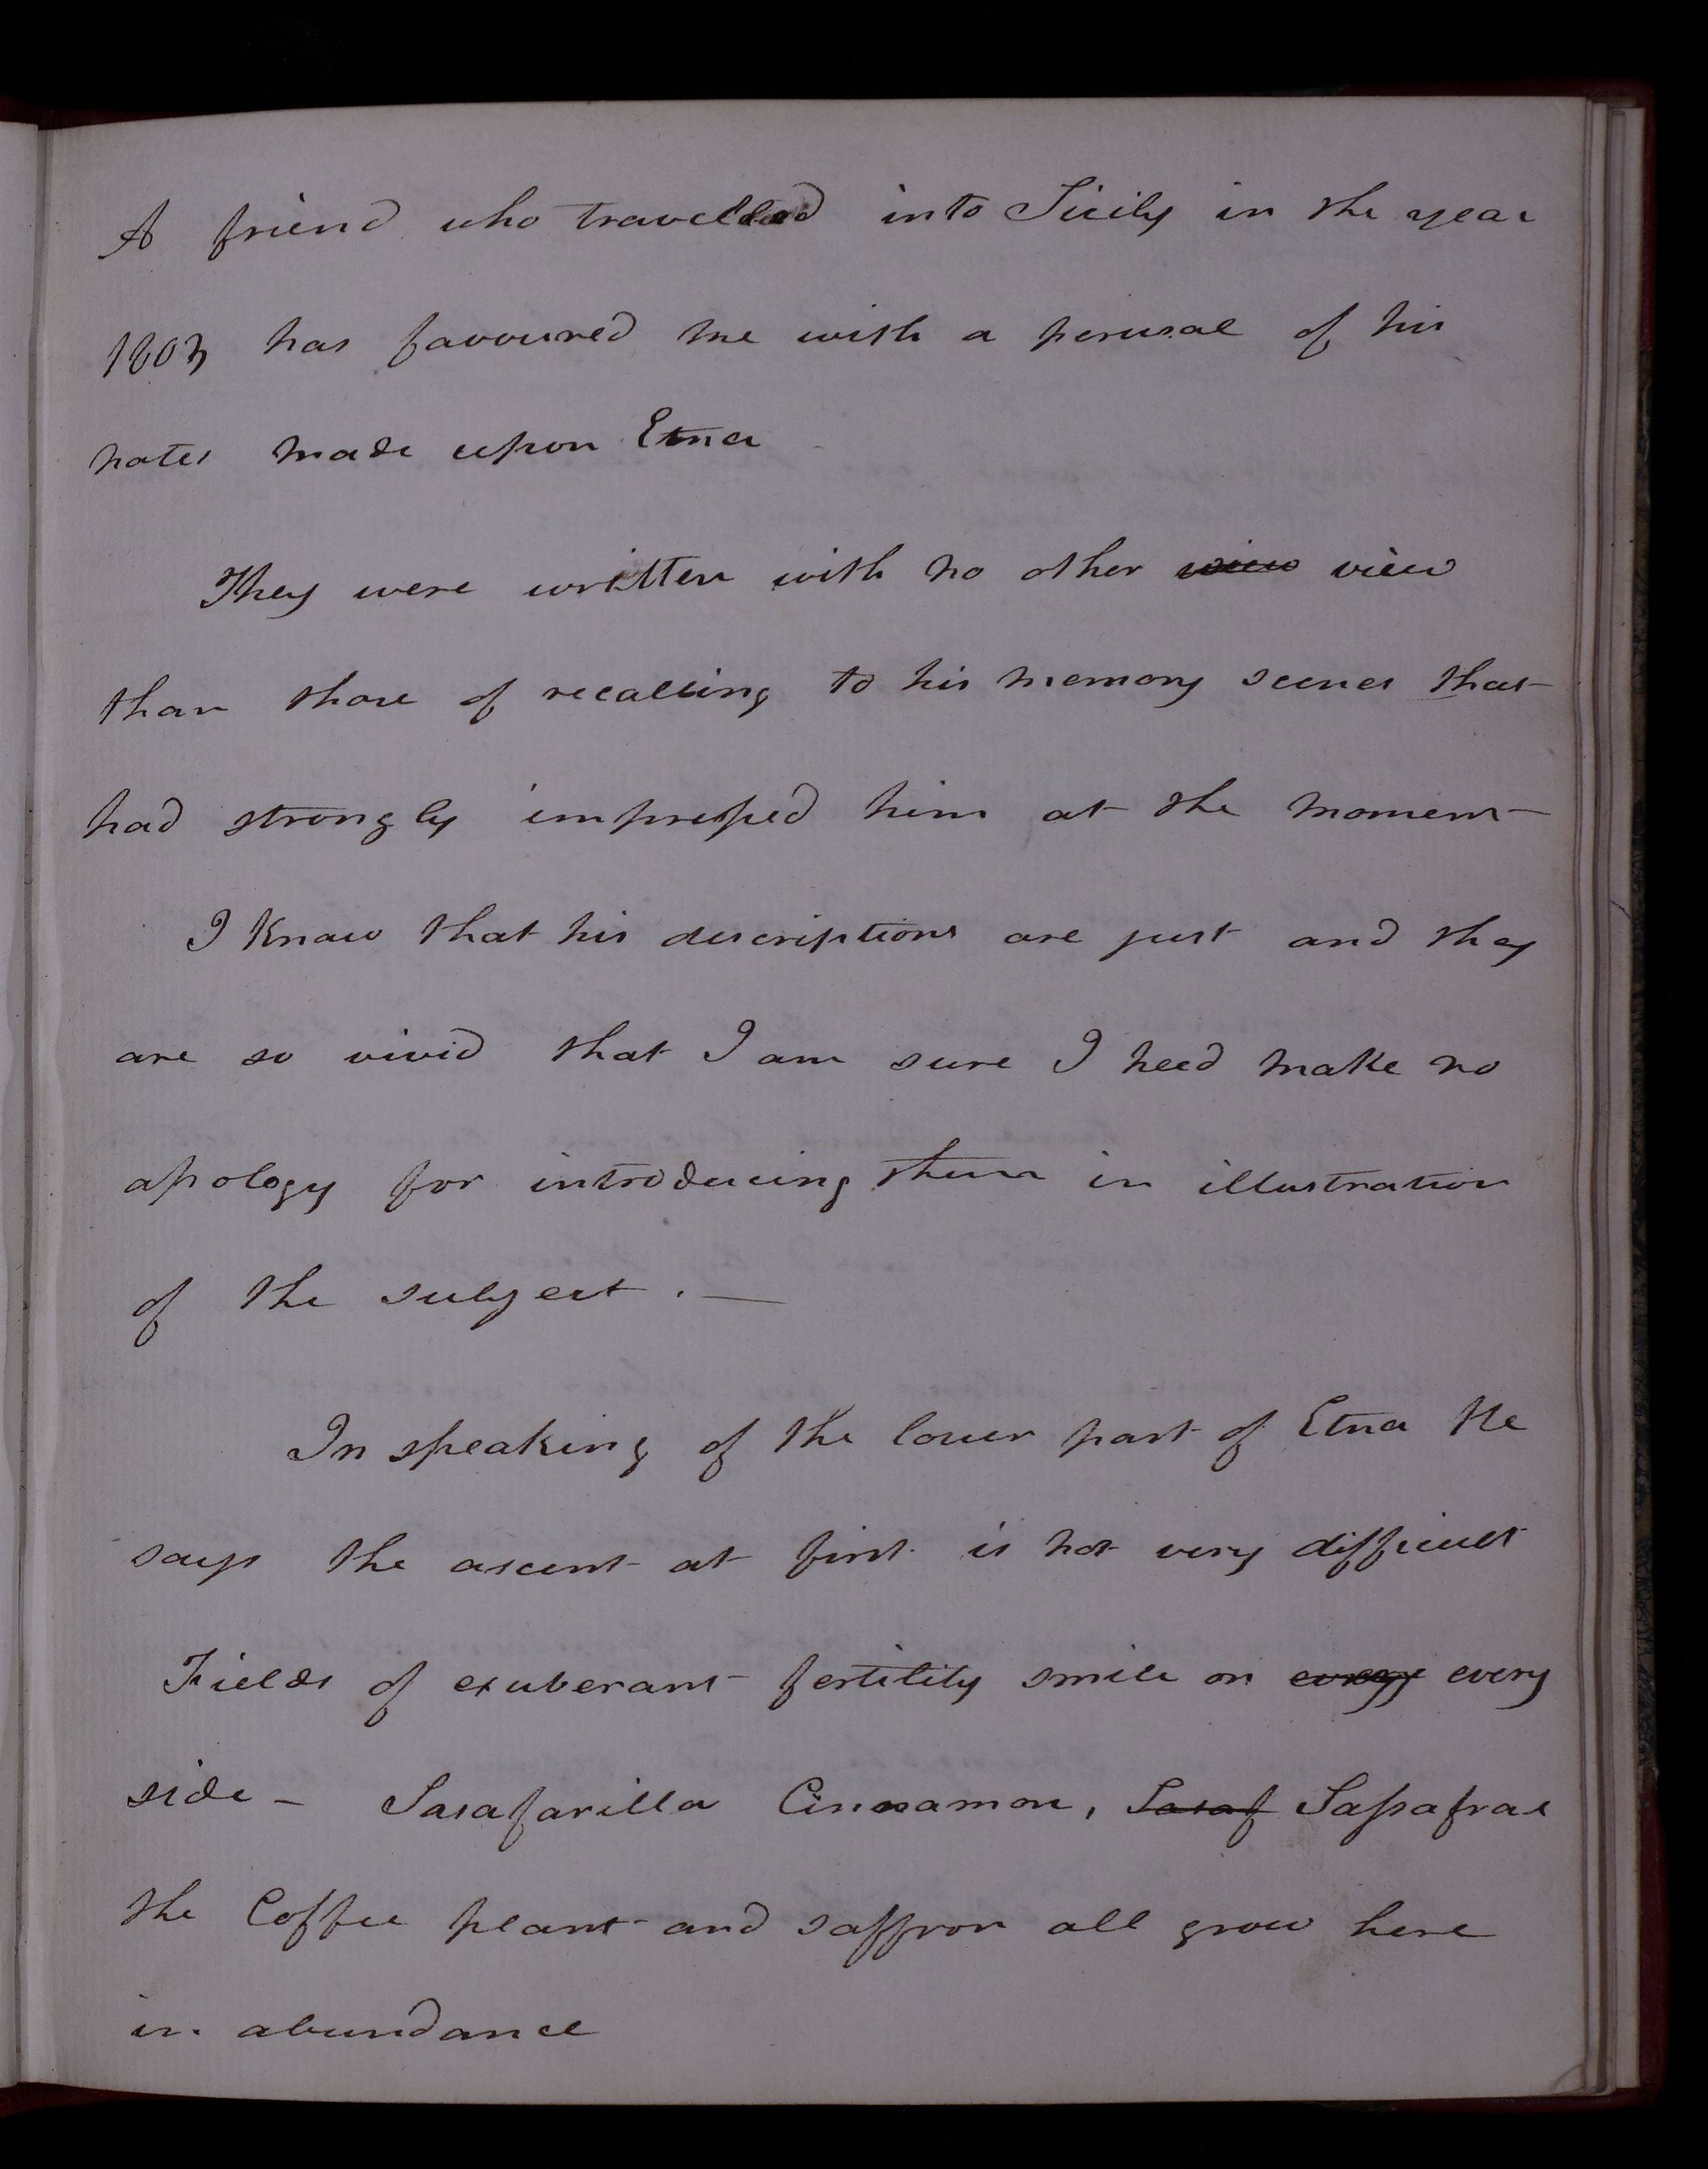 A friend who travelled into Sicily in the year
1803 has favoured me with a perusal of his
notes made upon Etna
They were written with no other view view
than those of recalling to his memory scenes that
had strongly impressed him at the moment
I Know that his descriptions are just and they
are so vivid that I am sure I need make no
apology for introducing them in illustration
of the subject. —
In speaking of the lower part of Etna He
says the ascent at first is not very difficult
Fields of exuberant fertility smile on every every
side - Sasafarilla Cinnamon, Sasaf Sassafras
the Coffee plant and saffron all grow here
in abundance